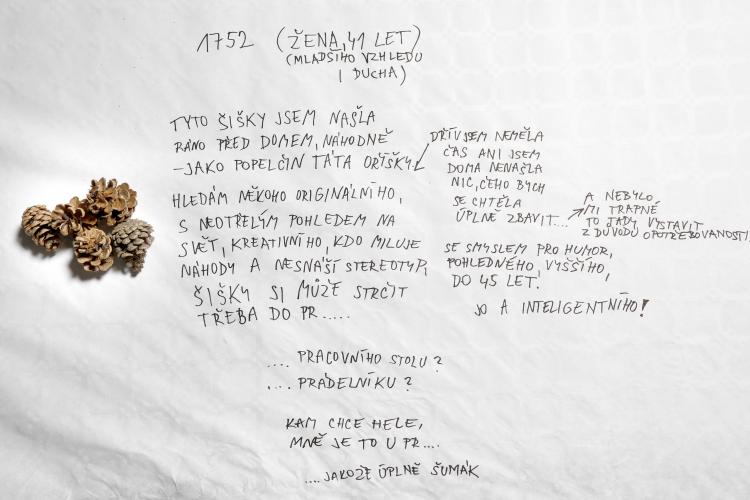 1752 (ŽENA, 41 LET)
(MLADŠÍHO VZHLEDU
I DUCHA)
TYTO ŠIŠKY JSEM NAŠLA
RÁNO PŘED DOMEM, NÁHODNĚ
– JAKO POPELČIN TÁTA OŘÍŠKY.
DŘÍV JSEM NEMĚLA
ČAS ANI JSEM
DOMA NENAŠLA
NIC, ČEHO BYCH
SE CHTĚLA
ÚPLNĚ ZBAVIT...
A NEBYLO
MI TRAPNÉ
TO TADY VYSTAVIT
Z DŮVODU OPOTŘEBOVANOSTI
HLEDÁM NĚKOHO ORIGINÁLNÍHO,
S NEOTŘELÝM POHLEDEM NA
SVĚT, KREATIVNÍHO, KDO MILUJE
NÁHODY A NESNÁŠÍ STEREOTYP,
ŠIŠKY SI MŮŽE STRČIT
TŘEBA DO PR.....
SE SMYSLEM PRO HUMOR,
POHLEDNÉHO, VYŠŠÍHO,
DO 45 LET.
JO A INTELIGENTNÍHO!
.... PRACOVNÍHO STOLU?
.... PRÁDELNÍKU?
KAM CHCE HELE,
MNĚ JE TO U PR....
....JAKOŽE ÚPLNĚ ŠUMÁK